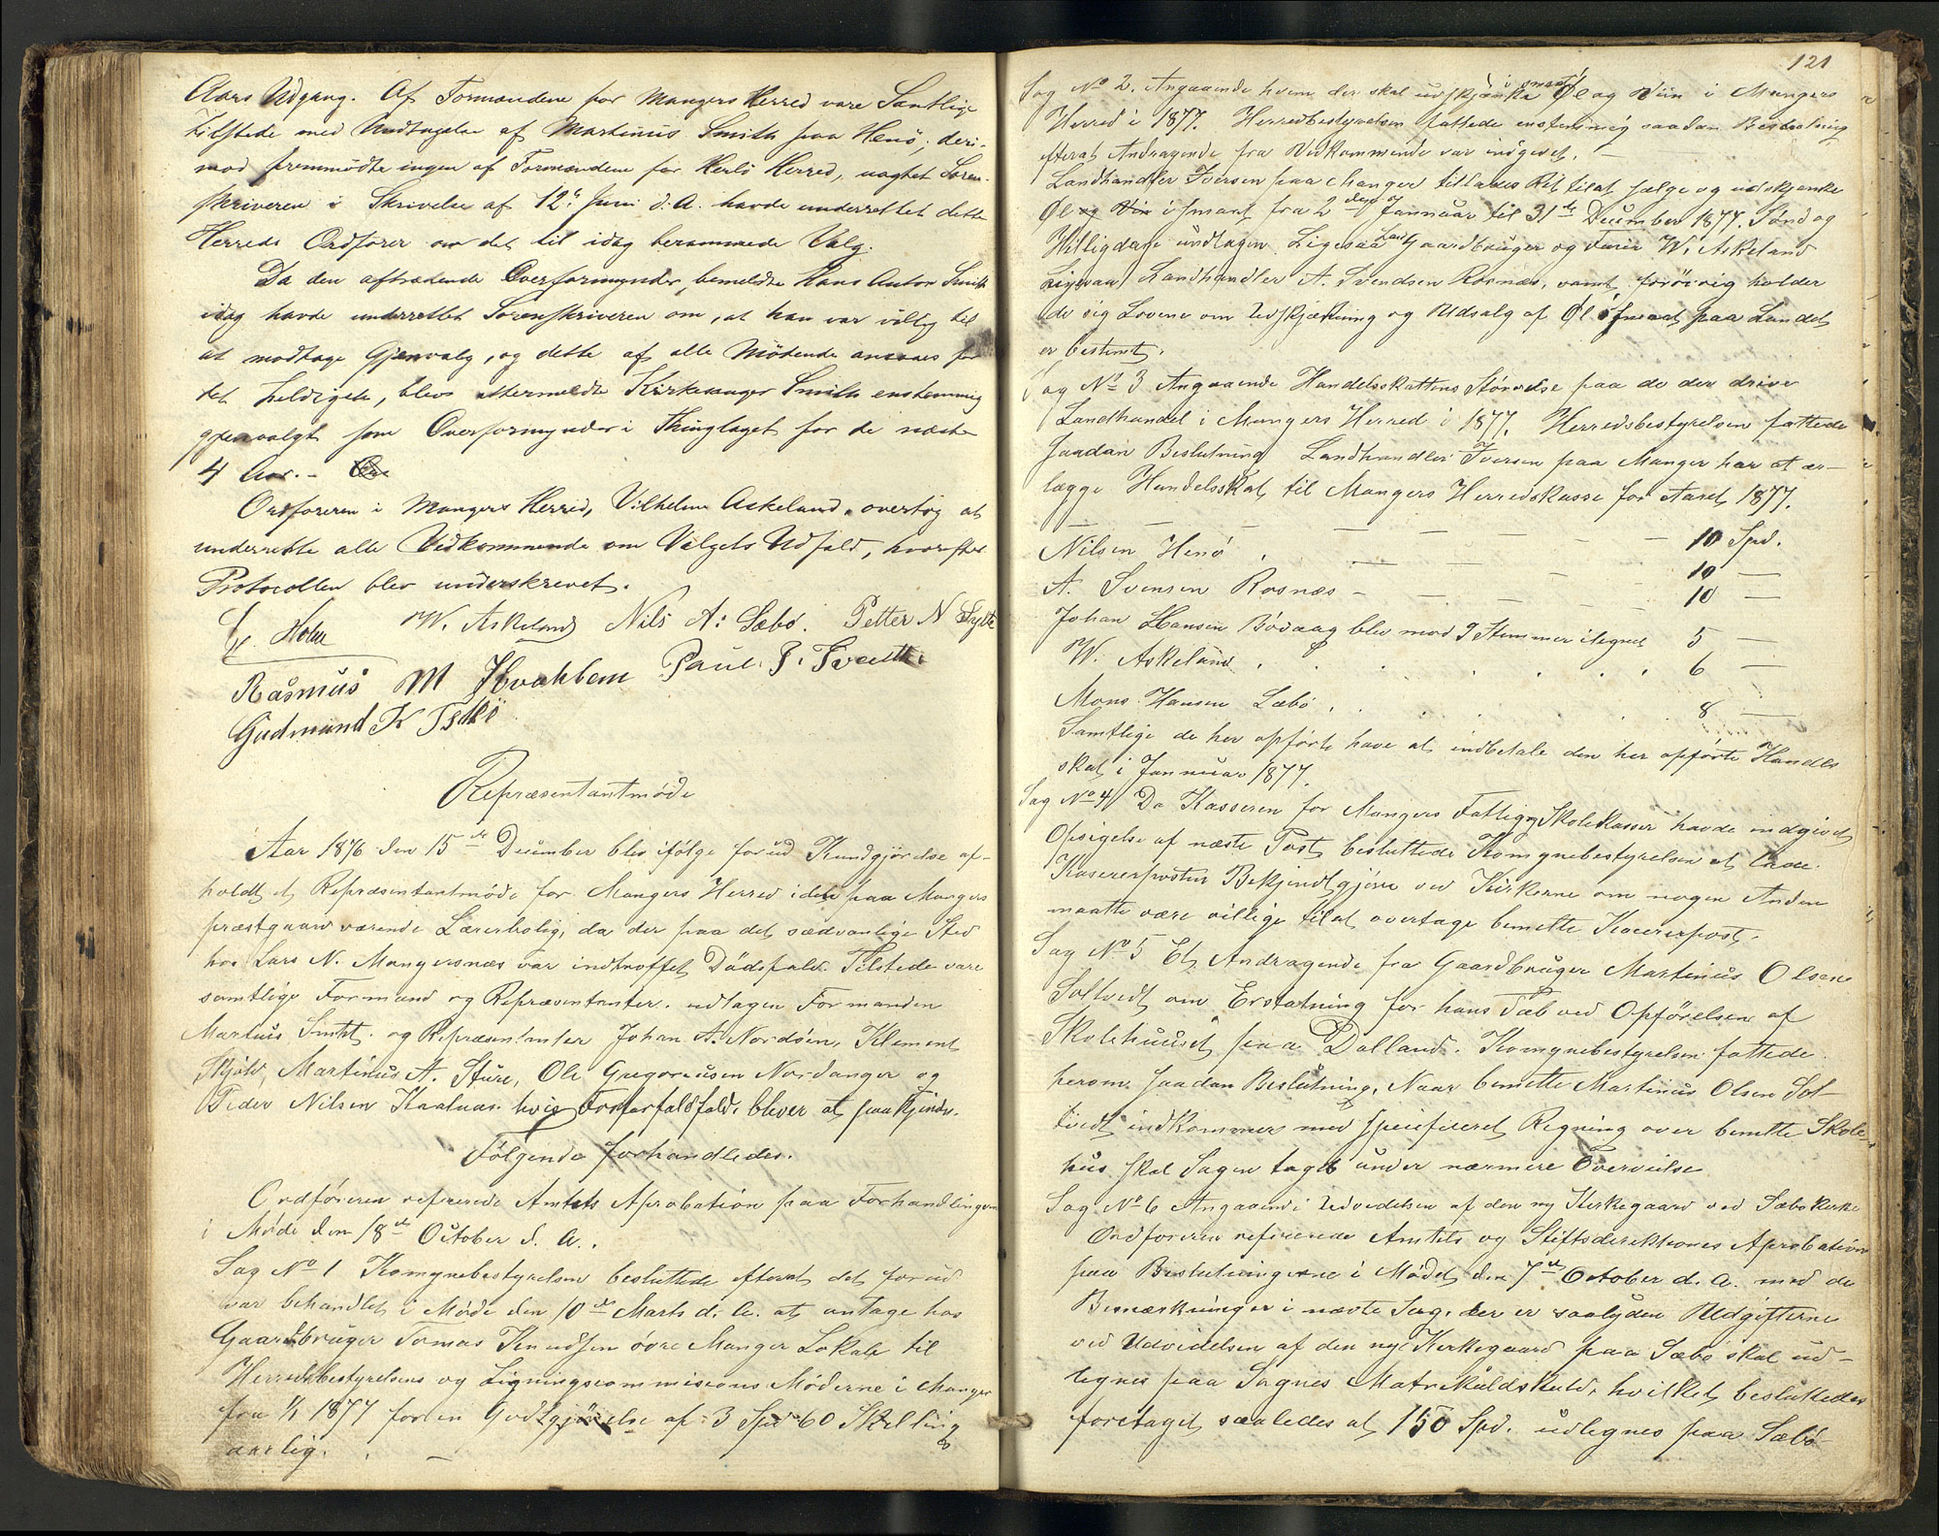 Aars Udgang. Af Formændene for Mangers Herred vare Samtlige
tilstede med Undtagelse af Martinus Smith paa Henö; deri-
mod fremmödte ingen af Formændene for Herlö Herred, uagtet Soren-
skriveren i Skrivelse af 12te Juni d. A. havde underrettet dette
Herreds Ordförer om det til idag berammede Valg.
Da den aftrædende Overformynder, bemeldte Hans Anton Smith
idag havde underrettet Sorenskriveren om, at han var villig til
at modtage Gjenvalg, og dette af alle Mödende ansaaes for
det heldigste, blev ommeldte Kirkesanger Smith enstemmig
gjenvalgt som Overformynder i Thinglaget for de næste
4 Aar. -
Ordföreren i Mangers Herred, Vilhelm Askeland, overtog at
underrette alle Vedkommende om Valgets Udfald, hvorefter
Protocollen blev underskrevet.
W. Askeland Nils A: Sæbö. Petter N Sylte
Rasmus M Paul P.
Gudmund K
Repræsentantmöde
Aar 1876 den 15de December blev ifölge forud Kundgjörelse af-
holdt et Repræsentantmöde for Mangers Herred i det paa Mangers
præstgaard værende Lærerbolig, da der paa det sædvanlige Sted
hos Lars N. Mangersnæs var indtroffet Dödsfald. Tilstede vare
samtlige Formænd og Repræsentanter. udtagen Formanden
Martinus Smith. og Repræsentanter Johan A. Nordöen, Klement
Skjold, Martinus A. Sture, Ole Gregoriusen Nordanger og
Peder Nilsen Kaalaas. hvis Forfald bliver at paakjende.
Fölgende forhandledes.
Ordföreren refererede Amtets Aprobation paa Forhandlingen
i Möde den 18de October d. A.
Sag No 1 Komynebestyrelsen besluttede efterat det forud
var behandlet i Möde den 10de Marts d. A. at antage hos
Gaardbruger Tomas Knudsen övre Manger Lokale til
Herredsbestyrelsens og Ligningscommisions Möderne i Manger
fra 1/1 1877 for en Godtgjörelse af 3 Spd 60 Skilling
aarlig.
121
Sag No 2. Angaaende hvem der skal udskjænke i smaat Öl og Viin i Mangers
Herred i 1877. Herredbestyrelsen fattede enstemmig saadan Beslutning
efterat Andragende fra Vedkommende var indgivet. -
Landhandler Iversen paa Manger tillades Ret til at sælge og udskjænke
Öl og Viin i smaat fra 2den Januar til 31te December 1877. Sönd og
Helligdage undtagen. Ligesaa Gaardbruger og W. Askeland
Ligesaa Landhandler A. Svendsen Rosnæs, samt forövrig holder
de sig Lovene om Udskjækning og Udsalg af Öl i smaat paa Landet
er bestemt.
Sag No 3 Angaaende Handelsskattens Störrelse paa de der driver
Landhandel i Mangers Herred i 1877. Herredsbestyrelsen fattede
saadan Beslutning Landhandler Iversen paa Manger har at er-
lægge Handelsskat til Mangers Herredskasse for Aaret 1877.
10 Spd.
Nilsen Henö . 10 —
A. Svensen Rosnæs - 10 —
Johan Hansen Bövaag blev med 9 Stemmer ilignet 5 —
W. Askeland . 6 —
Mons Hansen Sæbö . 8 —
Samtlige de her opförte have at indbetale den her opförte Handels
skat i Januar 1877.
Sag No 4 Da Kasseren for Mangers Fattig og Skolekasser havde indgivet
Opsigelse af næste Post, besluttede Komynebestyrelsen at lade
Kasererposten Bekjendtgjöre ved Kirkerne om nogen Anden
maatte være villige til at overtage bemelte Kasererpost.
Sag No 5 Et Andragende fra Gaardbruger Martinus Olsen
Soltvedt om Erstatning for hans Tab ved Opförelsen af
Skolehuuset paa Dalland. Komynebestyrelsen fattede
herom saadan Beslutning. Naar bemelte Martinus Olsen Sol-
tvedt indkommer med specifiseret Regning over bemelte Skole-
hus skal Sagen tages under nærmere Overveielse
Sag No 6 Angaaende Udvidelsen af den ny Kirkegaard ved Sæbö Kirke
Ordföreren refererede Amtets og Stiftsderektionens Aprobation
paa Beslutningerne i Mödet den 7de October d. A. med de
Bemærkninger i næste Sag. der er saalyden Udgifterne
ved Udvidelsen af den nye Kirkegaard paa Sæbö skal ud-
lignes paa Sognes Matrikuldskuld, hvilket besluttedes
foretaget saaledes at 150 Spd. udlignes paa Sæbö